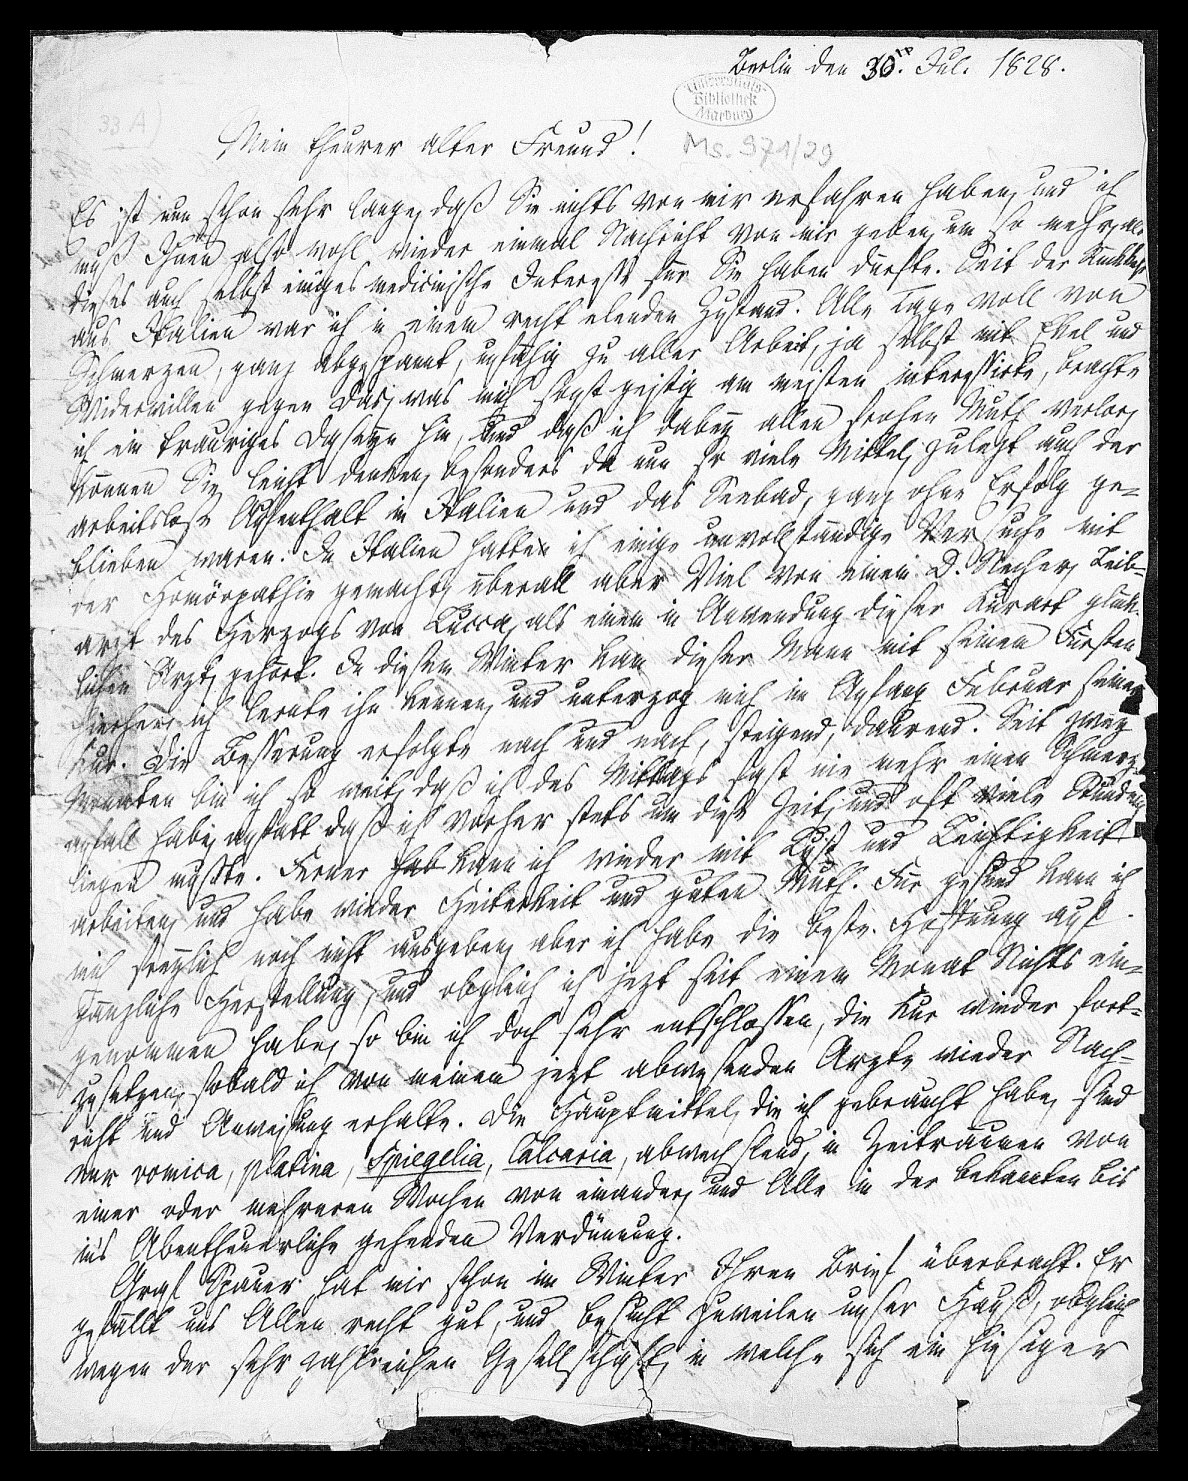 Berlin den 30ⁿ. Jul. 1828.
Universitäts-
Bibliothek
Marburg
33 A)
Mein theurer alter Freund!
Ms. 971/29
Es ist nun schon sehr lange, daß Sie nichts von mir erfahren haben, und ich
muß Ihnen also wohl wieder einmal Nachricht von mir geben, um so mehr, als
dieses auch selbst einiges medicinische Interesse für Sie haben dürfte. Seit der Rückkehr
aus Italien war ich in einem recht elenden Zustand. Alle Tage voll von
Schmerzen, ganz abgespannt, unfähig zu aller Arbeit, ja selbst mit Ekel und
Widerwillen gegen das, was mich sonst geistig am meisten interessirte, brachte
ich ein trauriges Daseyn hin, und daß ich dabey allen frohen Muth verlor,
können Sie leicht denken, besonders da nun so viele Mittel, zuletzt auch der
arbeitslose Aufenthalt in Italien und das Seebad, ganz ohne Erfolg ge-
blieben waren. In Italien hatte ich einige unvollständige Versuche mit
der Homöopathie gemacht, überall aber Viel von einem D. Necher, Leib-
arzt des Herzogs von Lucca, als einem in Anwendung dieser Kurart glück-
lichen Arzt, gehört. In diesem Winter kam dieser Mann mit seinem Fürsten
hierher; ich lernte ihn kennen, und unterzog mich im Anfang Februar seiner
Kur. Die Besserung erfolgte nach und nach, steigend, daurend. Seit zwey
Monaten bin ich so weit, daß ich des Mittags fast nie mehr einen Schmerz-
anfall habe, anstatt daß ich vorher stets um diese Zeit, und oft viele Stunden
liegen mußte. Ferner hab kann ich wieder mit Lust und Leichtigkeit
arbeiten, und habe wieder Heiterkeit und guten Muth. Für gesund kann ich
mich freylich noch nicht ausgeben, aber ich habe die beste Hoffnung auf
gänzliche Herstellung, und obgleich ich jezt seit einem Monat Nichts ein-
genommen habe, so bin ich doch sehr entschlossen, die Kur wieder fort-
zusetzen, sobald ich von meinem jezt abwesenden Arzte wieder Nach-
richt und Anweisung erhalte. Die Hauptmittel, die ich gebraucht habe, sind
nux vomica, platina, Spiegelia, Calcaria, abwechslend, in Zeiträumen von
einer oder mehreren Wochen von einander, und Alle in der bekannten bis
ins Abentheuerliche gehenden Verdünnung.
Graf Spauer hat mir schon im Winter Ihren Brief überbracht. Er
gefällt uns Allen recht gut, und besucht zuweilen unser Hauß, obgleich
wegen der sehr zahlreichen Gesellschaft, in welche sich ein hiesiger